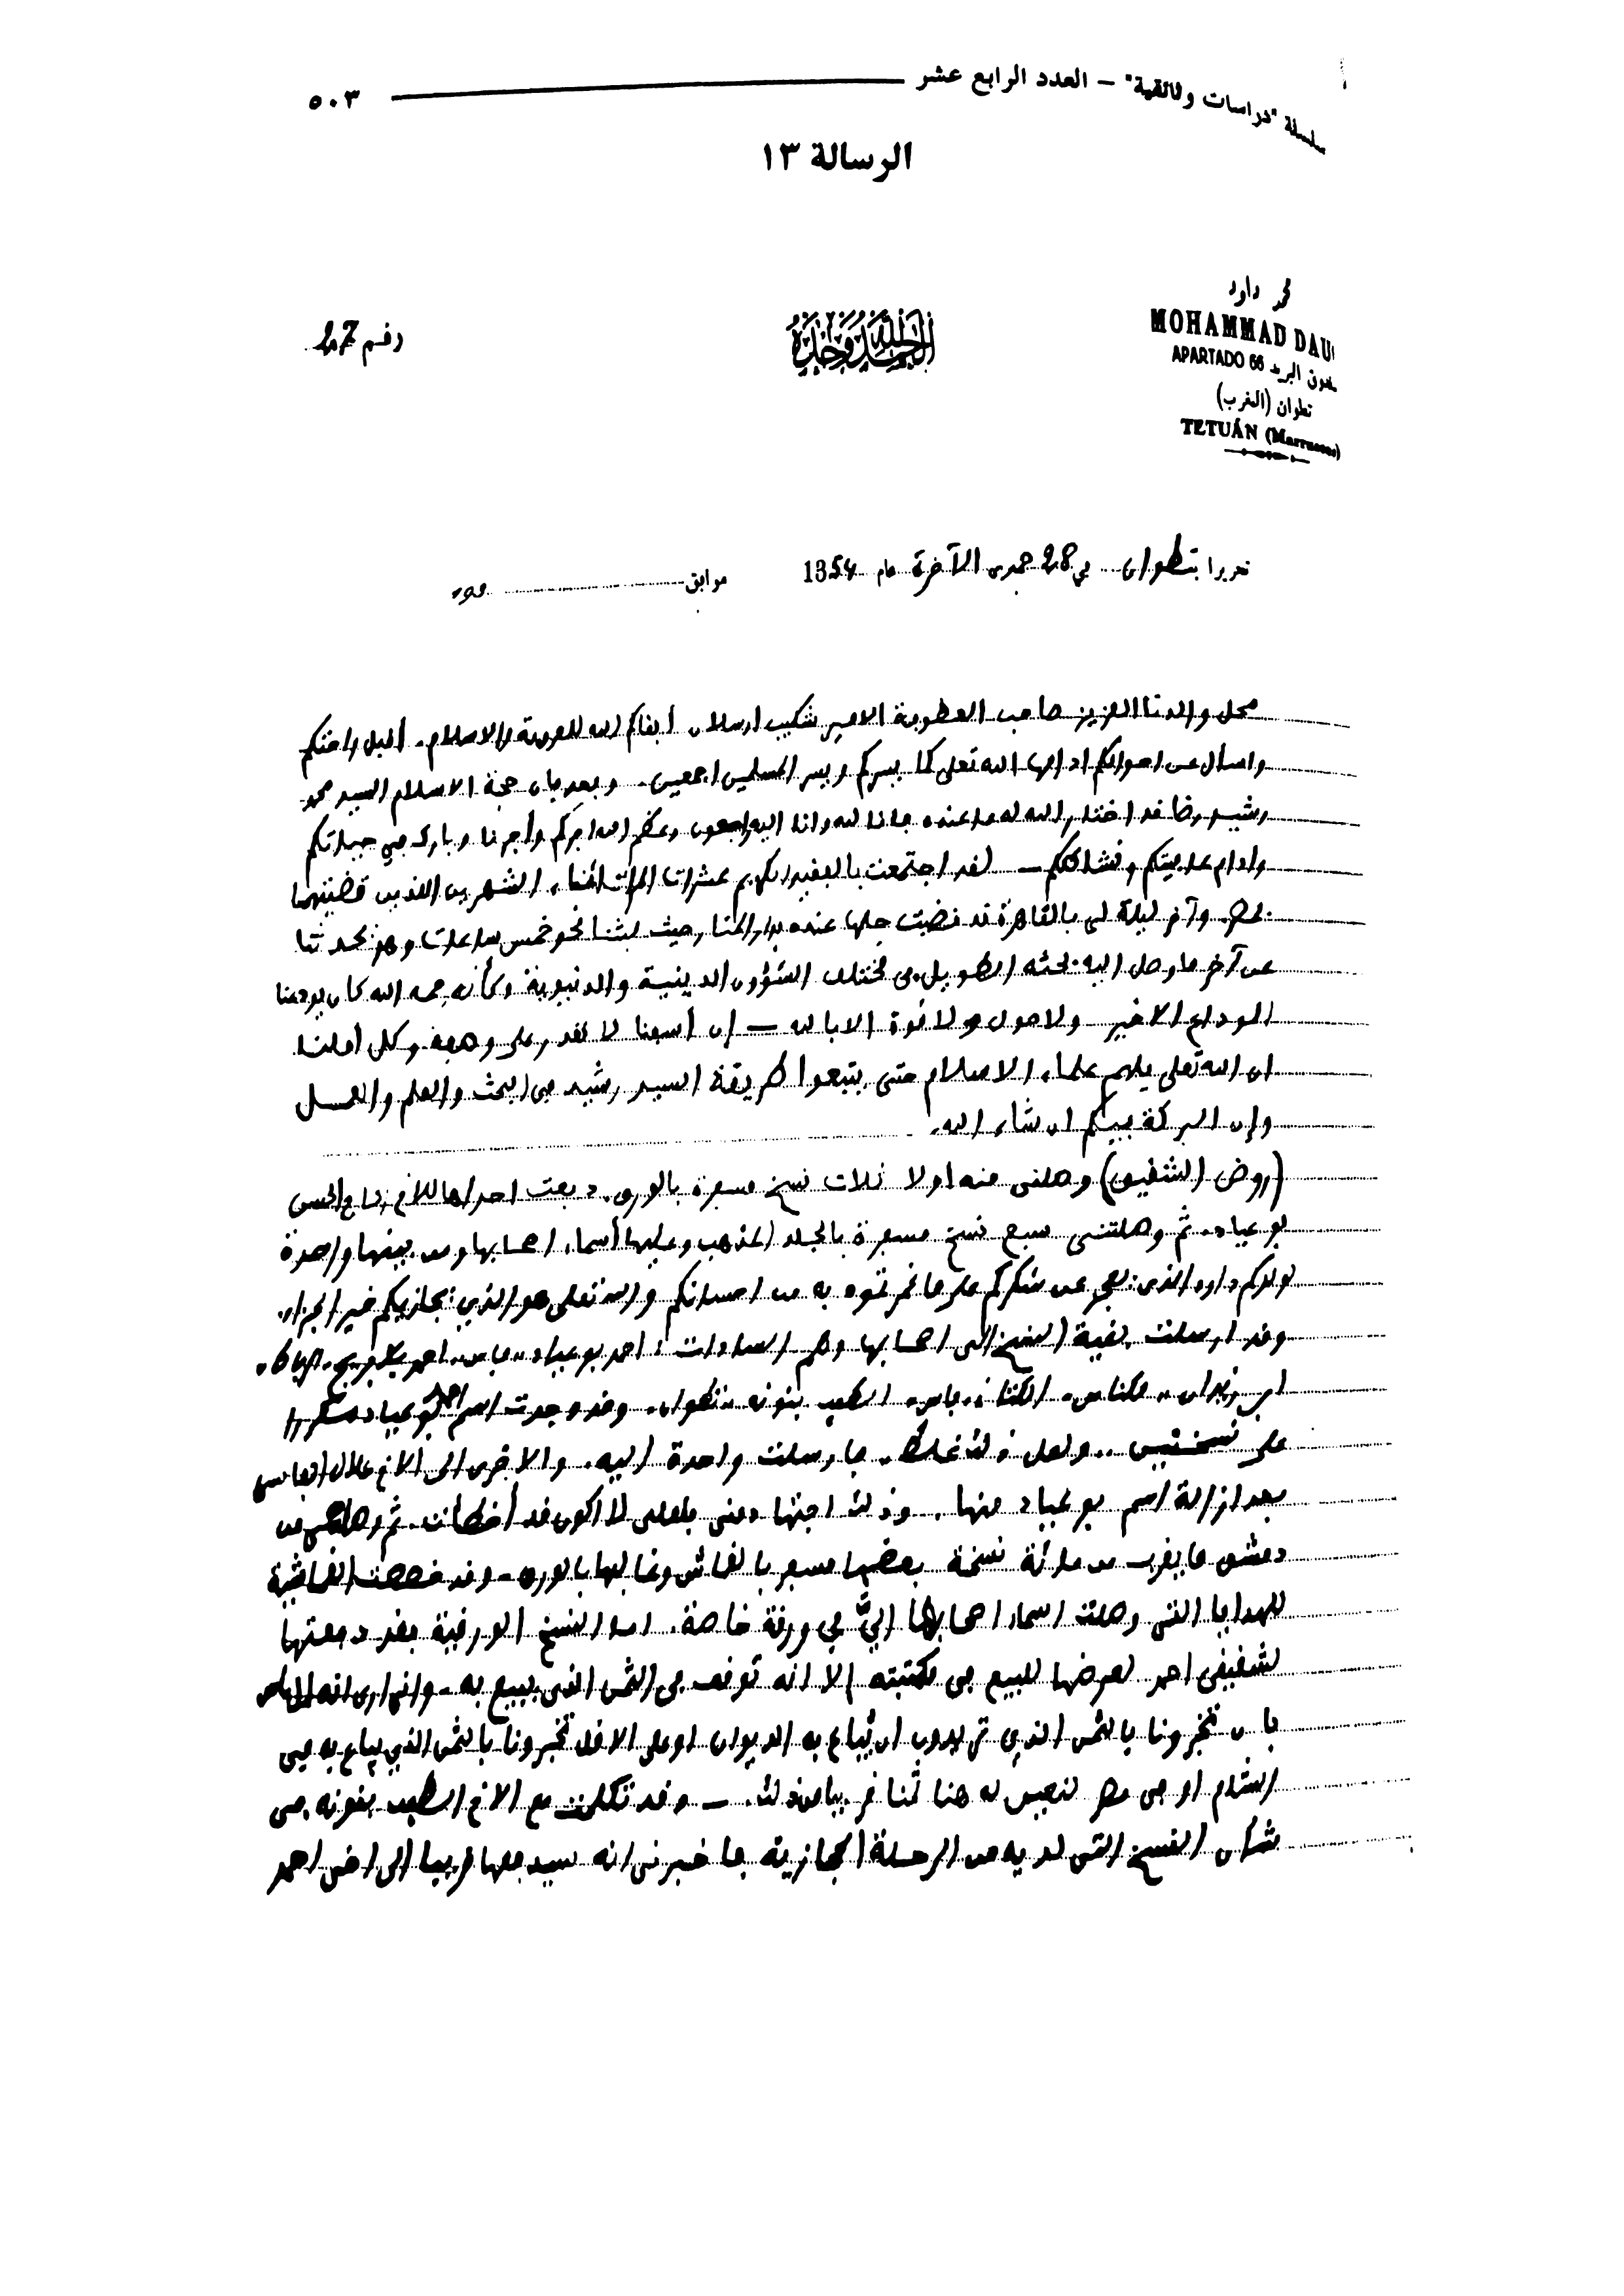 سلسلة "دراسات وثائقية" – العدد الرابع عشر ٥٠٣
الرسالة ١٣
محمد داود
MOHAMMAD DAU
APARTADO 66 صندوق البريد
تطوان (المغرب)
TETUÁN (Marruecos)
الحمد لله وحده
رقم 27
تحريرا بتطوان في 28 جمدى الآخرة عام 1354 موافق
محل والدنا العزيز صاحب العطوفة الامير شكيب ارسلان أبقاكم الله للعروبة والاسلام. أقبل راحتكم
واسأل عن احوالكم ادامها الله تعلى كما يسركم ويسر المسلمين اجمعين. وبعد فان حجة الاسلام السيد محمد
رشيد رضا قد اختار الله له ما عنده فانا لله وانا اليه راجعون وعظم الله اجركم وأجرنا وبارك في حياتكم
وادام عافيتكم ونشاطكم – لقد اجتمعت بالفقيد الكريم عشرات المرات اثناء الشهرين الذين قضيتهما
بمصر وآخر ليلة لي بالقاهرة قد قضيت جلها عنده بدار المنار حيث لبثنا نحو خمس ساعات وهو يحدثنا
عن آخر ما وصل اليه بحثه الطويل في مختلف الشؤون الدينية والدنيوية وكأنه رحمه الله كان يودعنا
الوداع الاخير ولا حول ولا قوة الا بالله – إن أسفنا لا نقدر على وصفه وكل أملنا
ان الله تعلى يلهم علماء الاسلام حتى يتبعوا طريقة السيد رشيد في البحث والعلم والعمل
وإن البركة فيكم ان شاء الله.
(روض الشقيق) وصلني منه اولا ثلاث نسخ مسفرة بالورق. دفعت احداها للاخ الحسن
بوعياد. ثم وصلتني سبع نسخ مسفرة بالجلد المذهب وعليها أسماء اصحابها ومن بينها واحدة
لولدكم داود الذي يعجز عن شكركم على ما غمرتموه به من احسانكم والله تعلى هو الذي يجازيكم خير الجزاء.
وقد ارسلت بقية النسخ الى اصحابها وهم السادات: احمد بوعياد "فاس" احمد بلافريج "الرباط"
ابن زيدان "مكناس" الكتاني "فاس" الطيب بنونه "تطوان". وقد وجدت اسم احمد بوعياد مكررا
على نسختين.. ولعل ذلك غلط. فارسلت واحدة اليه. والاخرى الى الاخ علال الفاسي
بعد ازالة اسم بوعياد منها. وذلك اجتهاد مني فلعلي لا اكون قد أخطأت. ثم وصلتني من
دمشق ما يقرب من مائة نسخة بعضها مسفر بالقماش وغالبها بالورق – وقد خصصت القماشية
للهدايا التي وصلت اسماء اصحابها اليّ في ورقة خاصة. اما النسخ الورقية فقد دفعتها
لشقيقي احمد لعرضها للبيع في مكتبته إلا انه توقف في الثمن الذي يبيع به – واني ارى انه لا بأس
بان تخبرونا بالثمن الذي تريدون ان يُباع به الديوان او على الاقل تخبرونا بالثمن الذي يباع به في
الشام او في مصر لنعين له هنا ثمنا قريبا من ذلك. – وقد تكلمت مع الاخ الطيب بنونه في
شأن النسخ التي لديه من الرحلة الحجازية فاخبرني انه سيدفعها قريبا الى اخي احمد